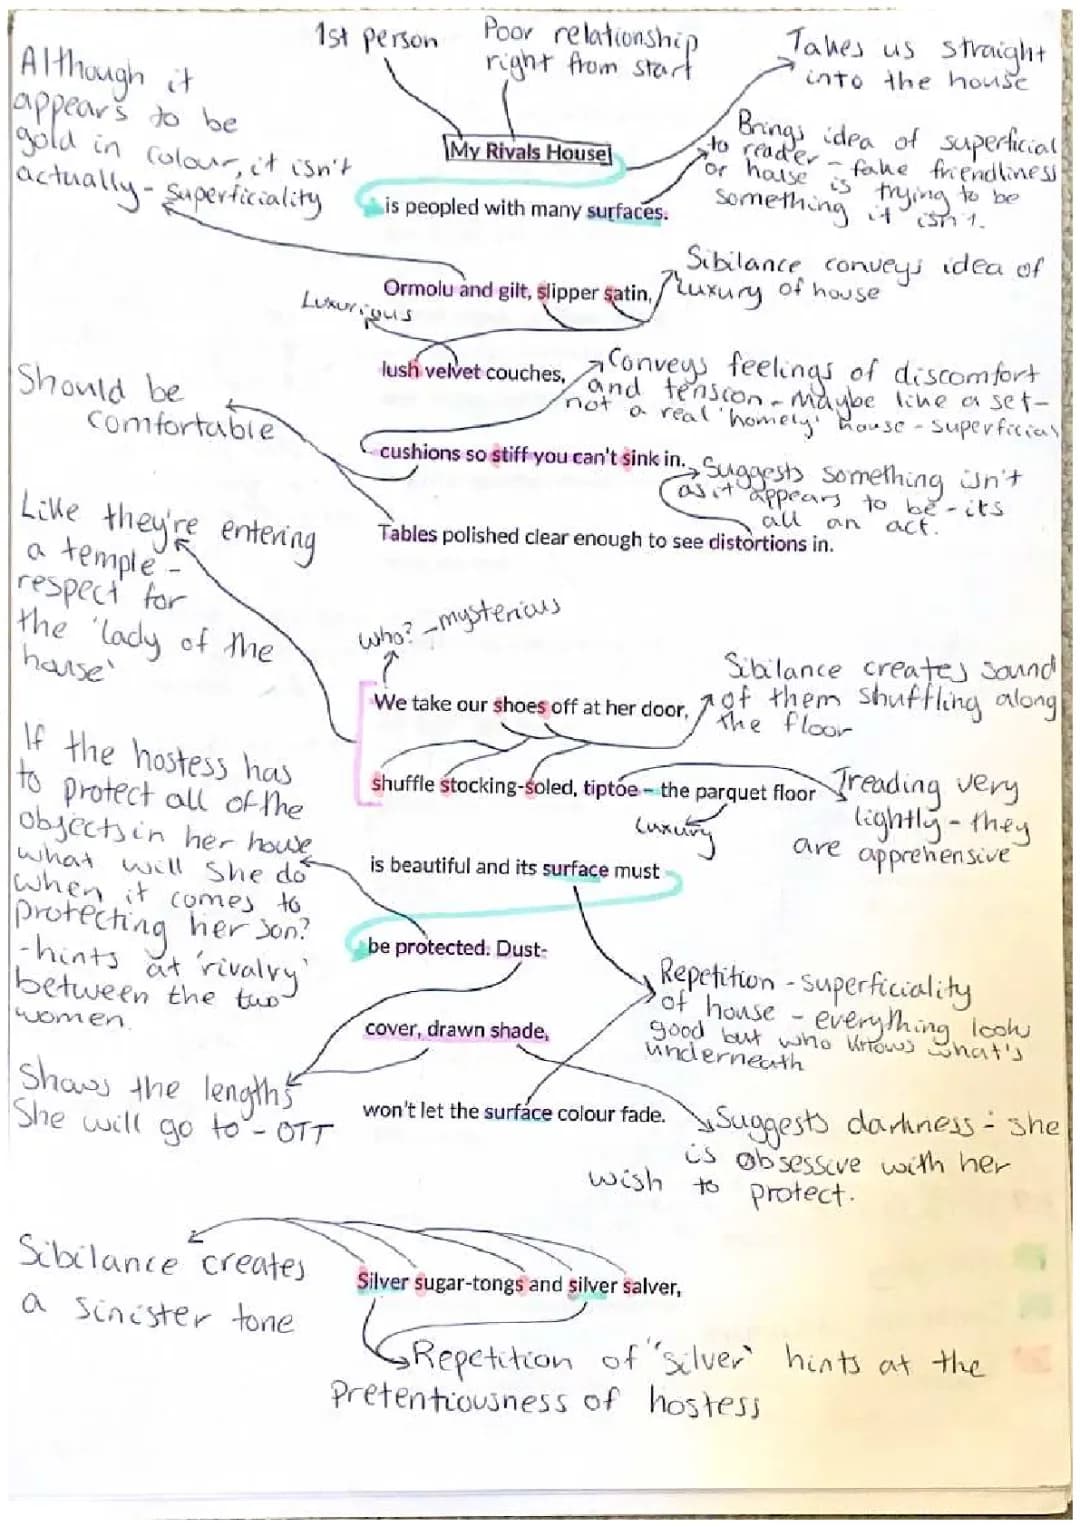 1st person
Poor relationship
right from start
Takes us straight
into the house
Although it
appears to be
gold in colour, it isn't
actually - superficiality
My Rivals House
Brings idea of superficial
to reader - fake friendliness
or house is trying to be
something it isn't.
is peopled with many surfaces.
Sibilance conveys idea of
luxury of house
Ormolu and gilt, slipper satin,
Luxurious
lush velvet couches,
Conveys feelings of discomfort
and tension - Maybe like a set -
not a real 'homely' house - superficial
Should be
comfortable
cushions so stiff you can't sink in.
Suggests something isn't
as it appears to be - its
all an act.
Tables polished clear enough to see distortions in.
Like they're entering
a temple -
respect for
the 'lady of the
house'
who? - mysterious
We take our shoes off at her door,
Sibilance creates sound
of them shuffling along
the floor
shuffle stocking-soled, tiptoe – the parquet floor
Treading very
lightly - they
are apprehensive
Luxury
is beautiful and its surface must
If the hostess has
to protect all of the
objects in her house
what will she do
when it comes to
protecting her son?
- hints at 'rivalry'
between the two
women.
be protected. Dust-
Repetition - superficiality
of house - everything looks
good but who knows what's
underneath
cover, drawn shade,
Shows the lengths
She will go to - OTT
won't let the surface colour fade.
Suggests darkness - she
is obsessive with her
wish to protect.
Sibilance creates
a sinister tone
Silver sugar-tongs and silver salver,
Repetition of "silver" hints at the
Pretentiousness of hostess